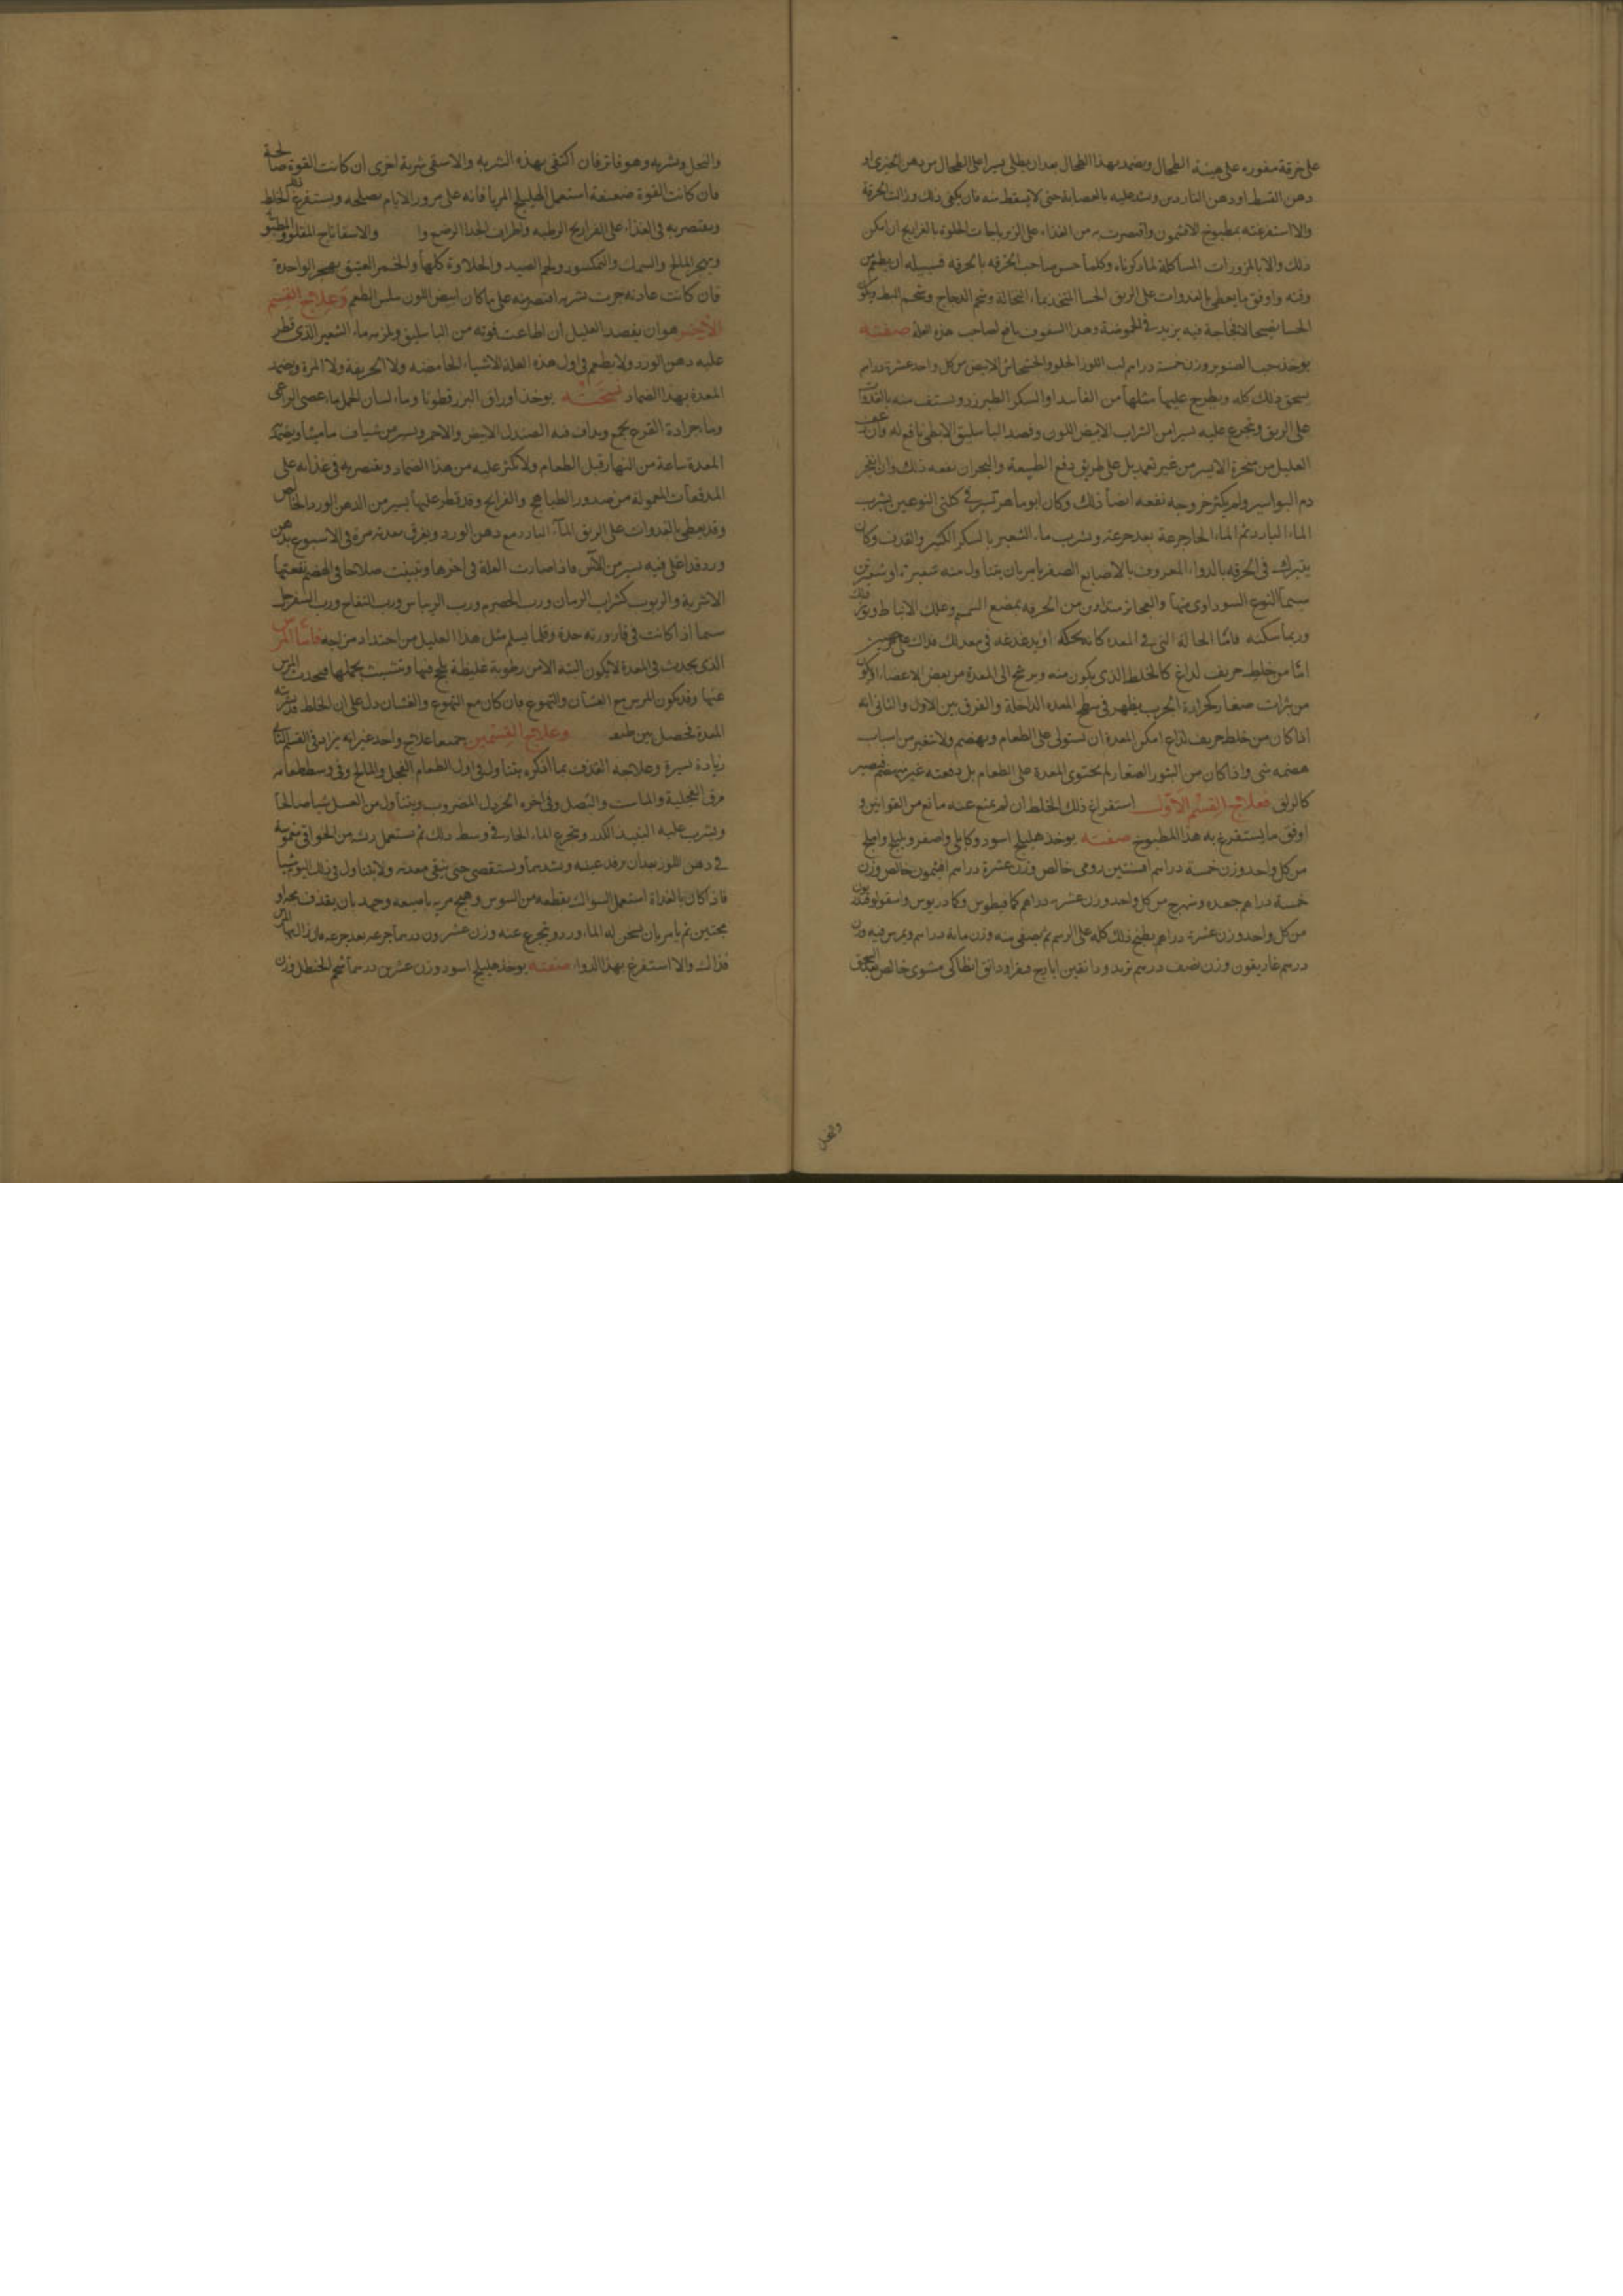 على خرقة مقورة على هيئة الطحال ويضمد بهذا الطحال بعد ان يطلى يسيرا على الطحال من دهن الخيرى او
دهن القسط او دهن الناردين وشد عليه بالعصابة حتى لا يسقط منه فان يكفى ذلك وزالت الحرقة
والا استفرغته بمطبوخ الافتيمون واقتصرت به من الغذاء على الزيرباجات الحلوة بالفراريج ان امكن
ذلك والا بالمزورات المشاكلة لما ذكرناه وكلما حس صاحب الحرقة بالحرقة فسبيله ان يطعم من
وقته واوفق ما يعطى بالغدوات على الريق الحسا المتخذ بماء النخالة وشحم الدجاج وشحم البط ويكون
الحسا نضيجا لا فجاجة فيه يزيد فى الحموضة وهذا السفوف نافع لصاحب هذه العلة صفته
يوخذ حب الصنوبر وزن خمسة دراهم لب اللوز الحلو والخشخاش الابيض من كل واحد عشرة دراهم
يسحق ذلك كله ويطرح عليها مثلها من الفانيد او السكر الطبرزد ويستف منه بالغدوات
على الريق ويتجرع عليه يسيرا من الشراب الابيض اللون وفصد الباسليق الابطى نافع له وان رعف
العليل من منخره الايسر من غير تعمد بل على طريق دفع الطبيعة والبحران نفعه ذلك وان انفجر
دم البواسير ولم يكثر خروجه نفعه ايضا ذلك وكان ابو ماهر يشير فى كلتى النوعين بشرب
الماء البارد ثم الماء الحار جرعة بعد جرعة وبشرب ماء الشعير بالسكر الكثير والقذف وكان
يتبرك فى الحرقة بالدواء المعروف بالاصابع الصفر يامر بان يتناول منه شعيرة او شعيرتين
سيما النوع السوداوى منها والعجائز يتداوين من الحرقة بمضغ السمسم وعلك الانباط ويؤثر ذلك
وربما سكنه فاما الحالة التى فى المعدة كانه يحكه او يدغدغه فى معدتك فذاك على ضربين
اما من خلط حريف لداغ كالخلط الذى يكون منه ويرشح الى المعدة من بعض الاعضاء او يكون
من بثرات صغار كحرارة الجرب يظهر فى سطح المعدة الداخلة والفرق بين الاول والثانى انه
اذا كان من خلط حريف لذاع امكن المعدة ان تستولى على الطعام ويهضم ولا تتغير من اسباب
هضمه شى واذا كان من البثور الصغار لم تحتوى المعدة على الطعام بل دفعته غير منهضم فيصير
كالزلق فعلاج القسم الاول استفراغ ذلك الخلط ان لم يمنع عنه مانع من القوانين و
اوفق ما يستفرغ به هذا المطبوخ صفته يوخذ هليلج اسود وكابلى واصفر وبليلج واملج
من كل واحد وزن خمسة دراهم افسنتين رومى خالص وزن عشرة دراهم افتيمون خالص وزن
خمسة دراهم جعدة وشهترج من كل واحد وزن عشرة دراهم كمافيطوس وكمادريوس واسقولوقندريون
من كل واحد وزن عشرة دراهم يطبخ ذلك كله على الرسم ثم يصفى منه وزن مائة درهم ويمرس فيه وزن
درهم غاريقون وزن نصف درهم تربد ودانقين ايارج فيقرا ودانق انطاكى مشوى خالص السحق
وينخل
والنخل ويشربه وهو فاتر فان اكتفى بهذه الشربة والا سقى شربة اخرى ان كانت القوة صالحة
فان كانت القوة ضعيفة استعمل الهليلج المربا فانه على مرور الايام يصلحه ويستفرغ الخلط
ويقتصر به فى الغذاء على الفراريج الرطبة واطراف الجدا الرضع وا والاسفاناج المقلو والمطبوخ
ويهجر المالح والسمك والنمكسود ولحم الصيد والحلاوة كلها والخمر العتيق يهجر الواحدة
فان كانت عادته جرت بشربه اقتصر منه على ما كان ابيض اللون سلس الطعم وعلاج القسم
الاخير هو ان يفصد العليل ان اطاعت قوته من الباسليق ويلزم ماء الشعير الذى قطر
عليه دهن الورد ولا يطعم فى اول هذه العلة الاشياء الحامضة ولا الحريفة ولا المرة ويضمد
المعدة بهذا الضماد نسخته يوخذ اوراق البزرقطونا وماء لسان الحمل ماء عصى الراعى
وماء جرادة القرع يجمع ويداف فيه الصندل الابيض والاحمر ويسير من شياف ماميثا ويضمد
المعدة ساعة من النهار قبل الطعام ولا تكثر عليه من هذا الضماد ويقتصر به فى غذائه على
المدققات المعمولة من صدور الطياهيج والفراريج وقد قطر عليها يسير من الدهن الورد الخالص
وقد يعطى بالغدوات على الريق الماء البارد مع دهن الورد ويعرق معدته مرة فى الاسبوع بدهن
ورد قد اغلى فيه يسير من الآس فاذا صارت العلة فى اخرها وتبينت صلاحا فى الهضم نفعتها
الاشربة والربوب كشراب الرمان ورب الحصرم ورب الريباس ورب التفاح ورب السفرجل
سيما اذا كانت فى قارورته حدة وقلما يسلم مثل هذا العليل من احتداد مزاجه فاما المرس
الذى يحدث فى المعدة لا يكون البتة الا من رطوبة غليظة يلج فيها وتتشبث بخملها فيحدث المرس
عنها وقد يكون المرس مع الغشان والتهوع فان كان مع التهوع والغشان دل على ان الخلط قد شربته
المعدة فحصل بين طبقـ وعلاج القسمين جميعا علاج واحد غير انه يزاد فى القسم الثانى
زيادة يسيرة وعلاجه القذف بما اذكره يتناول فى اول الطعام الفجل والمالح وفى وسط طعامه
مرق الفجلية والماست والبصل وفى اخره الخردل المضروب ويتناول من العسل شيا صالحا
ويشرب عليه النبيذ الكدر ويتجرع الماء الحار فى وسط ذلك ثم يستعمل ريشة من الخوافى مغموسة
فى دهن اللوز بعد ان يرفد عينيه ويشدهما ويستقصى حتى ينقى معدته ولا يتناول فى ذلك اليوم شيا
فاذا كان بالغداة استعمل السواك بقطعة من السوس وهيج مريه باصبعه وجهد بان يقذف مجة او
مجتين ثم يامر بان يسخن له الماء ورد ويتجرع عنه وزن عشرون درهما جرعة بعد جرعة فان زال المرس
فذاك والا استفرغ بهذا الدواء صفته يوخذ هليلج اسود وزن عشرين درهما شحم الحنظل وزن